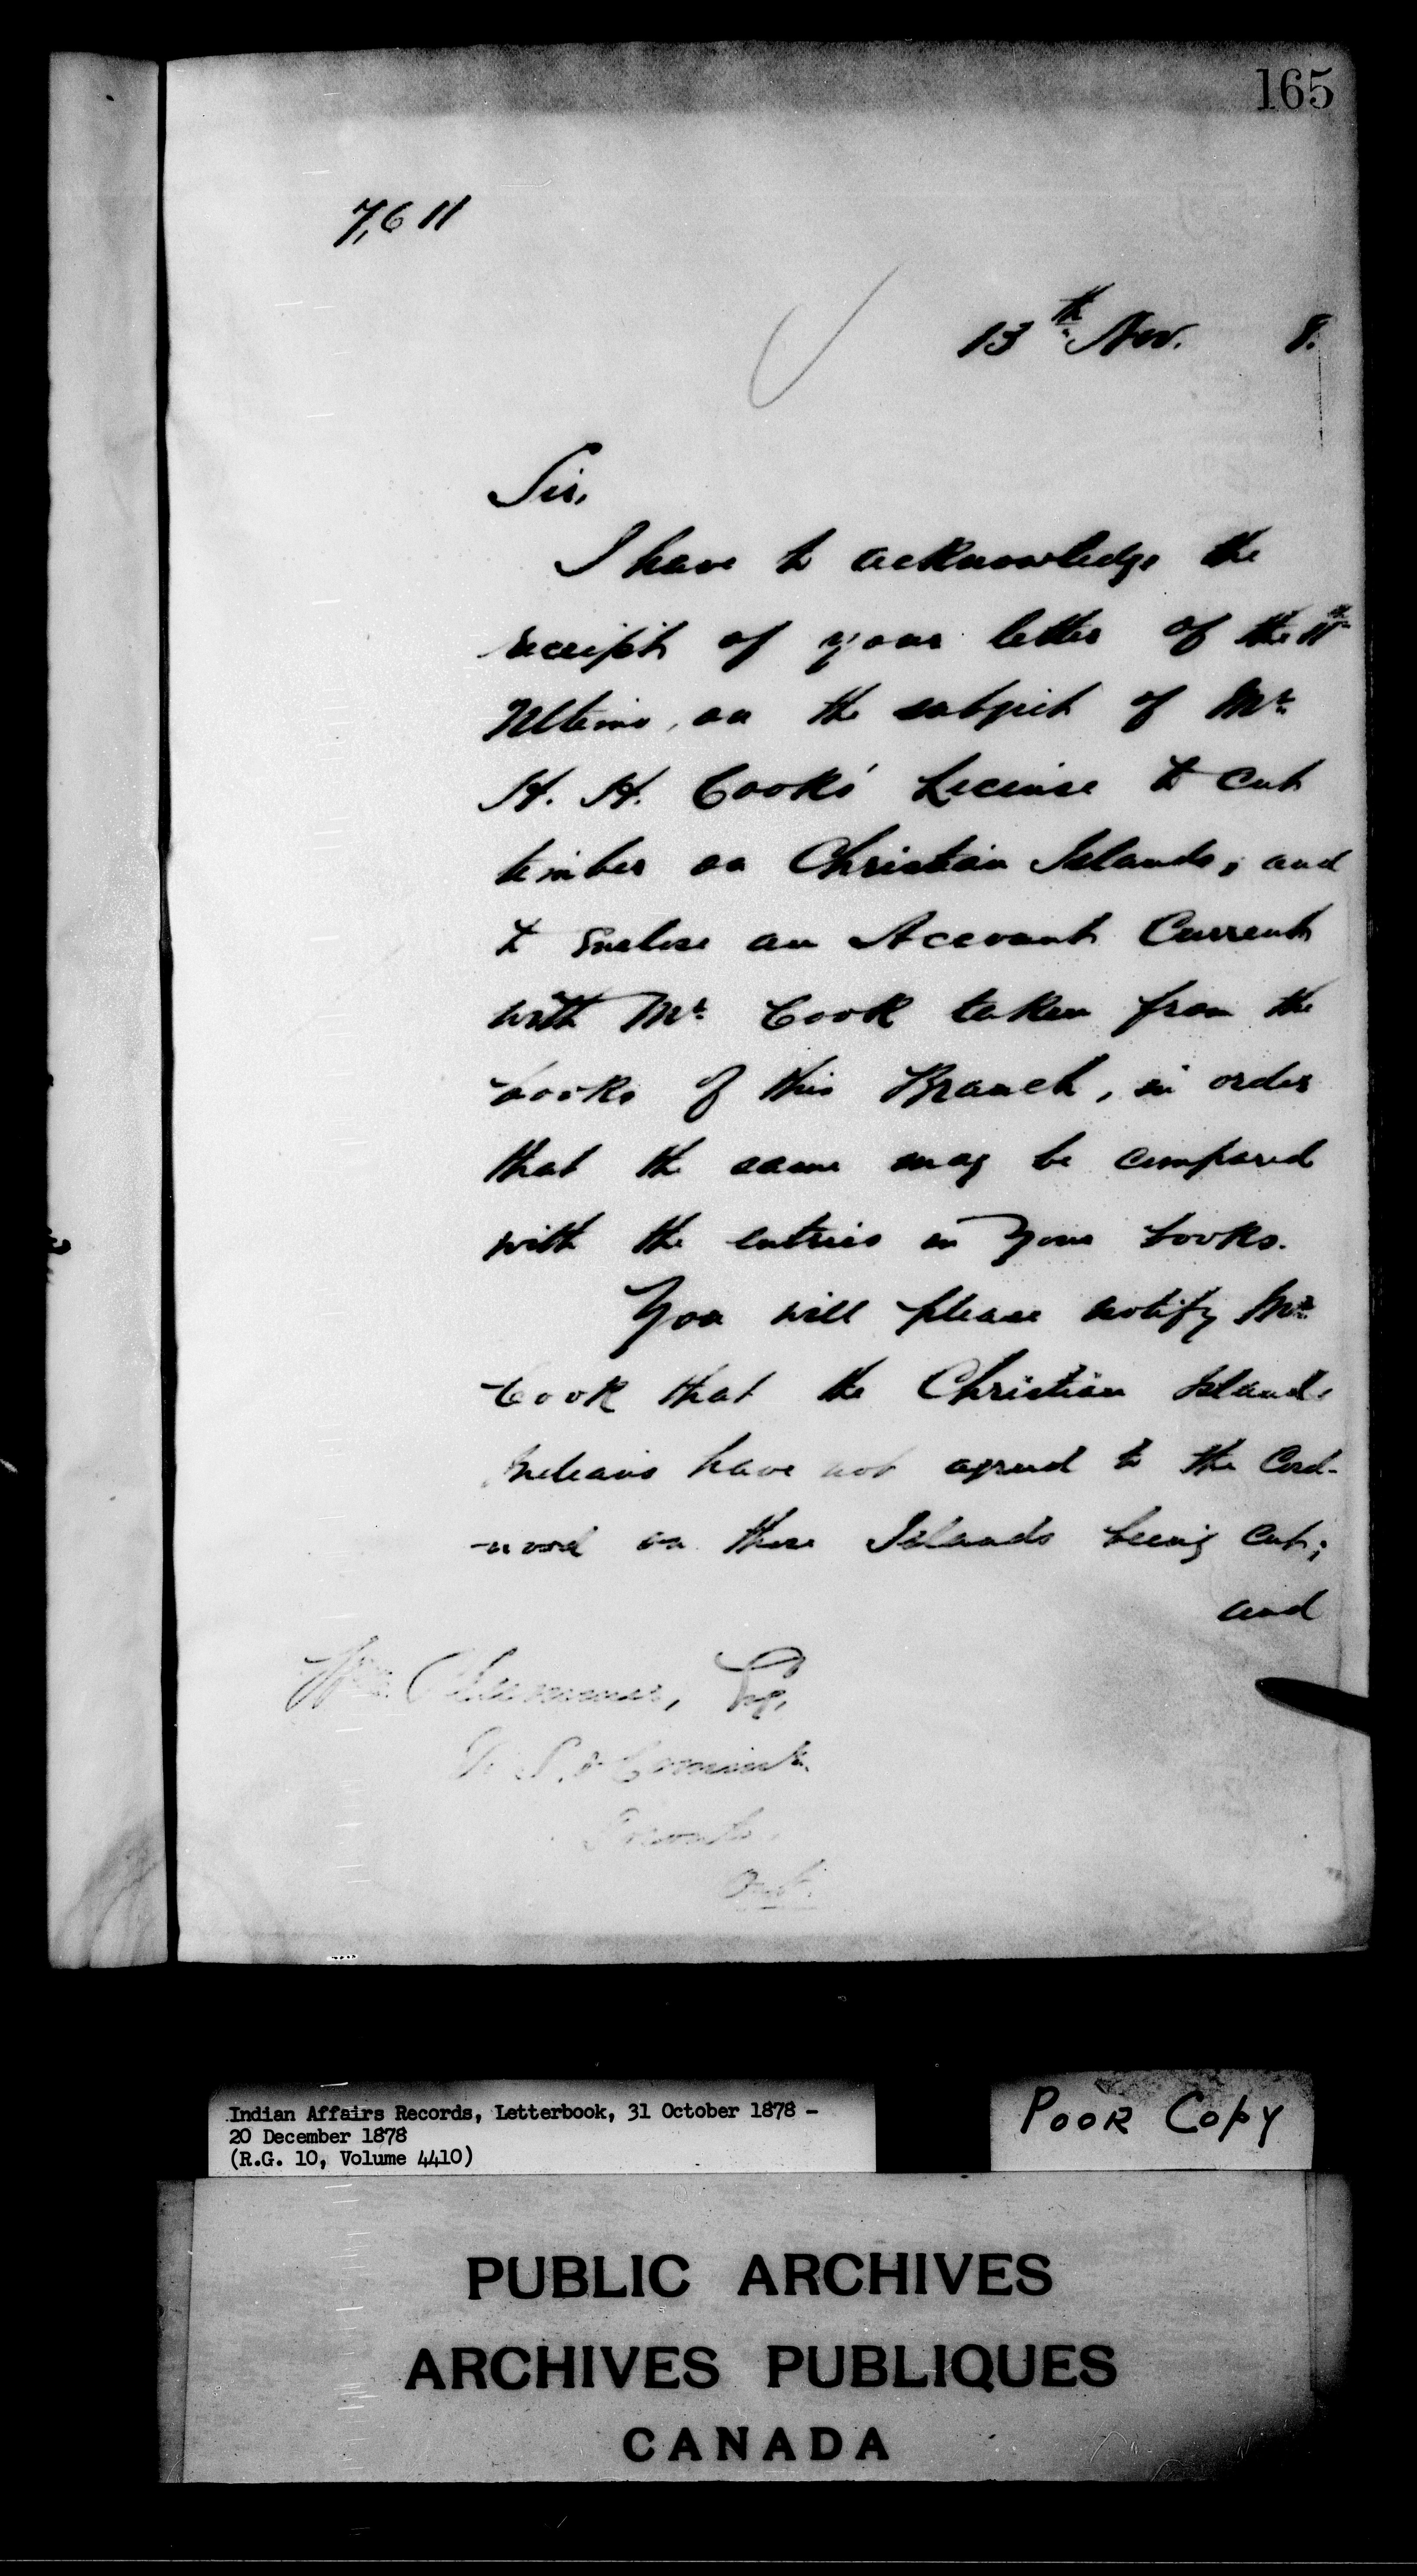 165
7,611
13th Nov. 8.
Sir,
I have to acknowledge the
receipt of your letter of the 11th
Ultimo, on the subject of Mr.
H. H. Cooks' License to cut
timber on Christian Islands, and
to enclose an Account Current
with Mr. Cook taken from the
books of this Branch, in order
that the same may be compared
with the entries in your books.
You will please notify Mr.
Cook that the Christian Islands
Indians have not agreed to the Cord-
-wood on those Islands being cut;
and
Wm. Plummer, Esq,
Toronto,
Ont.
Indian Affairs Records, Letterbook, 31 October 1878 -
20 December 1878
(R.G. 10, Volume 4410)
POOR COPY
PUBLIC ARCHIVES
ARCHIVES PUBLIQUES
CANADA